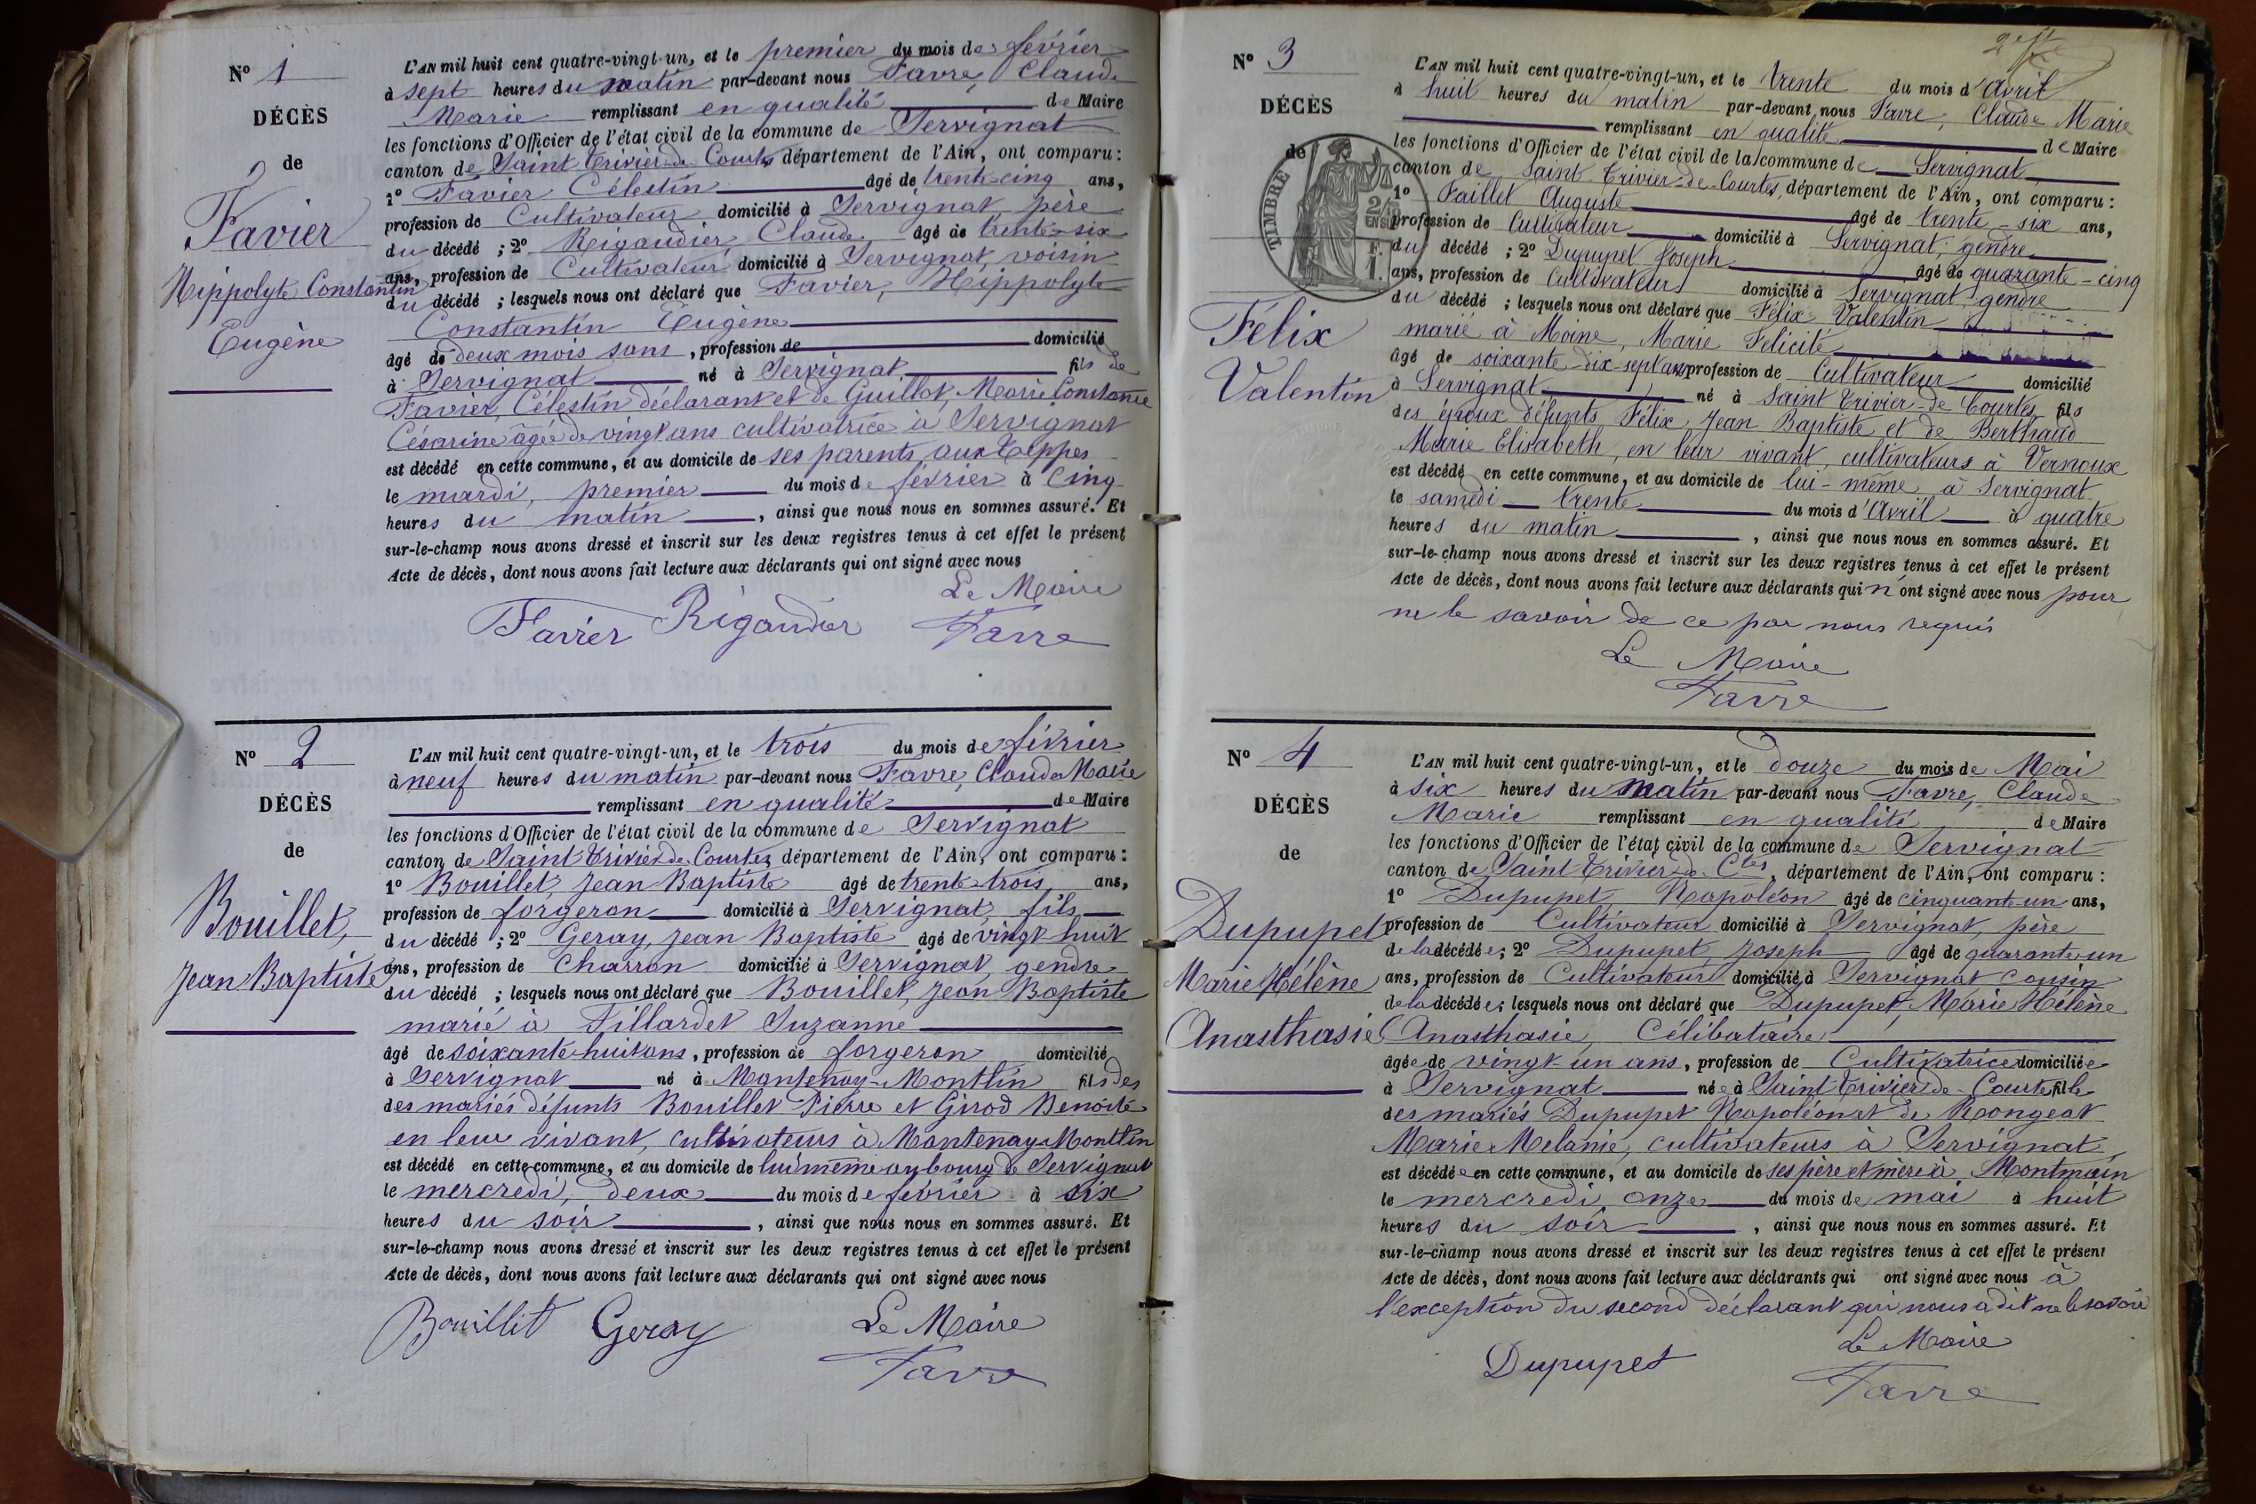 N° 1
DÉCÈS
de
Favier
Hippolyte Constantin
Eugène
L'AN mil huit cent quatre-vingt-un, et le premier du mois de février
à sept heures du matin par-devant nous Favre, Claude
Marie remplissant en qualité de Maire
les fonctions d'Officier de l'état civil de la commune de Servignat
canton de Saint Trivier de Courtes département de l'Ain, ont comparu:
1° Favier Célestin âgé de trente-cinq ans,
profession de Cultivateur domicilié à Servignat père
du décédé ; 2° Rigaudier Claude âgé de trente-six
ans, profession de Cultivateur domicilié à Servignat, voisin
du décédé ; lesquels nous ont déclaré que Favier, Hippolyte
Constantin Eugène
âgé de deux mois sans, profession de domicilié
à Servignat né à Servignat fils de
Favier, Célestin déclarant et de Guillot, Marie Constance
Césarine âgée de vingt ans cultivatrice à Servignat
est décédé en cette commune, et au domicile de ses parents, aux Teppes
le mardi, premier du mois de février à cinq
heures du matin, ainsi que nous nous en sommes assuré. Et
sur-le-champ nous avons dressé et inscrit sur les deux registres tenus à cet effet le présent
Acte de décès, dont nous avons fait lecture aux déclarants qui ont signé avec nous
Le Maire
Favier Rigaudier Favre
N° 2
DÉCÈS
de
Bouillet,
Jean Baptiste
L'AN mil huit cent quatre-vingt-un, et le trois du mois de février
à neuf heures du matin par-devant nous Favre, Claude Marie
remplissant en qualité de Maire
les fonctions d'Officier de l'état civil de la commune de Servignat
canton de Saint Trivier de Courtes département de l'Ain, ont comparu:
1° Bouillet, Jean Baptiste âgé de trente-trois ans,
profession de forgeron domicilié à Servignat, fils
du décédé ; 2° Geray, Jean Baptiste âgé de vingt-huit
ans, profession de Charron domicilié à Servignat, gendre
du décédé ; lesquels nous ont déclaré que Bouillet, Jean Baptiste
marié à Tillardet Suzanne
âgé de soixante-huit ans, profession de forgeron domicilié
à Servignat né à Mantenay-Montlin fils des
des mariés défunts Bouillet Pierre et Girod Benoîte
en leur vivant, cultivateurs à Mantenay-Montlin
est décédé en cette commune, et au domicile de lui-même au bourg de Servignat
le mercredi, deux du mois de février à six
heures du soir, ainsi que nous nous en sommes assuré. Et
sur-le-champ nous avons dressé et inscrit sur les deux registres tenus à cet effet le présent
Acte de décès, dont nous avons fait lecture aux déclarants qui ont signé avec nous
Bouillet Geray Le Maire
Favre
N° 3
DÉCÈS
de
TIMBRE
Félix
Valentin
L'AN mil huit cent quatre-vingt-un, et le trente du mois d'avril
à huit heures du matin par-devant nous Favre, Claude Marie
remplissant en qualité de Maire
les fonctions d'Officier de l'état civil de la commune de Servignat
canton de Saint Trivier-de-Courtes, département de l'Ain, ont comparu:
1° Paillet Auguste âgé de trente-six ans,
profession de Cultivateur domicilié à Servignat, gendre
du décédé ; 2° Dupupet Joseph âgé de quarante-cinq
ans, profession de Cultivateur domicilié à Servignat, gendre
du décédé ; lesquels nous ont déclaré que Félix Valentin
marié à Moine, Marie Félicité
âgé de soixante-dix-sept ans, profession de Cultivateur domicilié
à Servignat né à Saint Trivier-de-Courtes fils
des époux défunts Félix, Jean Baptiste et de Berthaud
Marie Elisabeth, en leur vivant, cultivateurs à Vernoux
est décédé en cette commune, et au domicile de lui-même à Servignat
le samedi trente du mois d'avril à quatre
heures du matin, ainsi que nous nous en sommes assuré. Et
sur-le-champ nous avons dressé et inscrit sur les deux registres tenus à cet effet le présent
Acte de décès, dont nous avons fait lecture aux déclarants qui n'ont signé avec nous pour
ne le savoir de ce par nous requis
Le Maire
Favre
N° 4
DÉCÈS
de
Dupupet
Marie Hélène
Anasthasie
L'AN mil huit cent quatre-vingt-un, et le douze du mois de Mai
à six heures du matin par-devant nous Favre, Claude
Marie remplissant en qualité de Maire
les fonctions d'Officier de l'état civil de la commune de Servignat
canton de Saint Trivier de Ctes, département de l'Ain, ont comparu:
1° Dupupet, Napoléon âgé de cinquante-un ans,
profession de Cultivateur domicilié à Servignat, père
de la décédée ; 2° Dupupet, Joseph âgé de quarante-un
ans, profession de Cultivateur domicilié à Servignat cousin
de la décédée ; lesquels nous ont déclaré que Dupupet, Marie Hélène
Anasthasie, Célibataire
âgée de vingt-un ans, profession de Cultivatrice domiciliée
à Servignat née à Saint Trivier de Courtes fille
des mariés Dupupet Napoléon et de Rongeat
Marie Mélanie, cultivateurs à Servignat
est décédée en cette commune, et au domicile de ses père et mère à Montmain
le mercredi onze du mois de mai à huit
heures du soir, ainsi que nous nous en sommes assuré. Et
sur-le-champ nous avons dressé et inscrit sur les deux registres tenus à cet effet le présent
Acte de décès, dont nous avons fait lecture aux déclarants qui ont signé avec nous à
l'exception du second déclarant qui nous a dit ne le savoir
Le Maire
Dupupet Favre